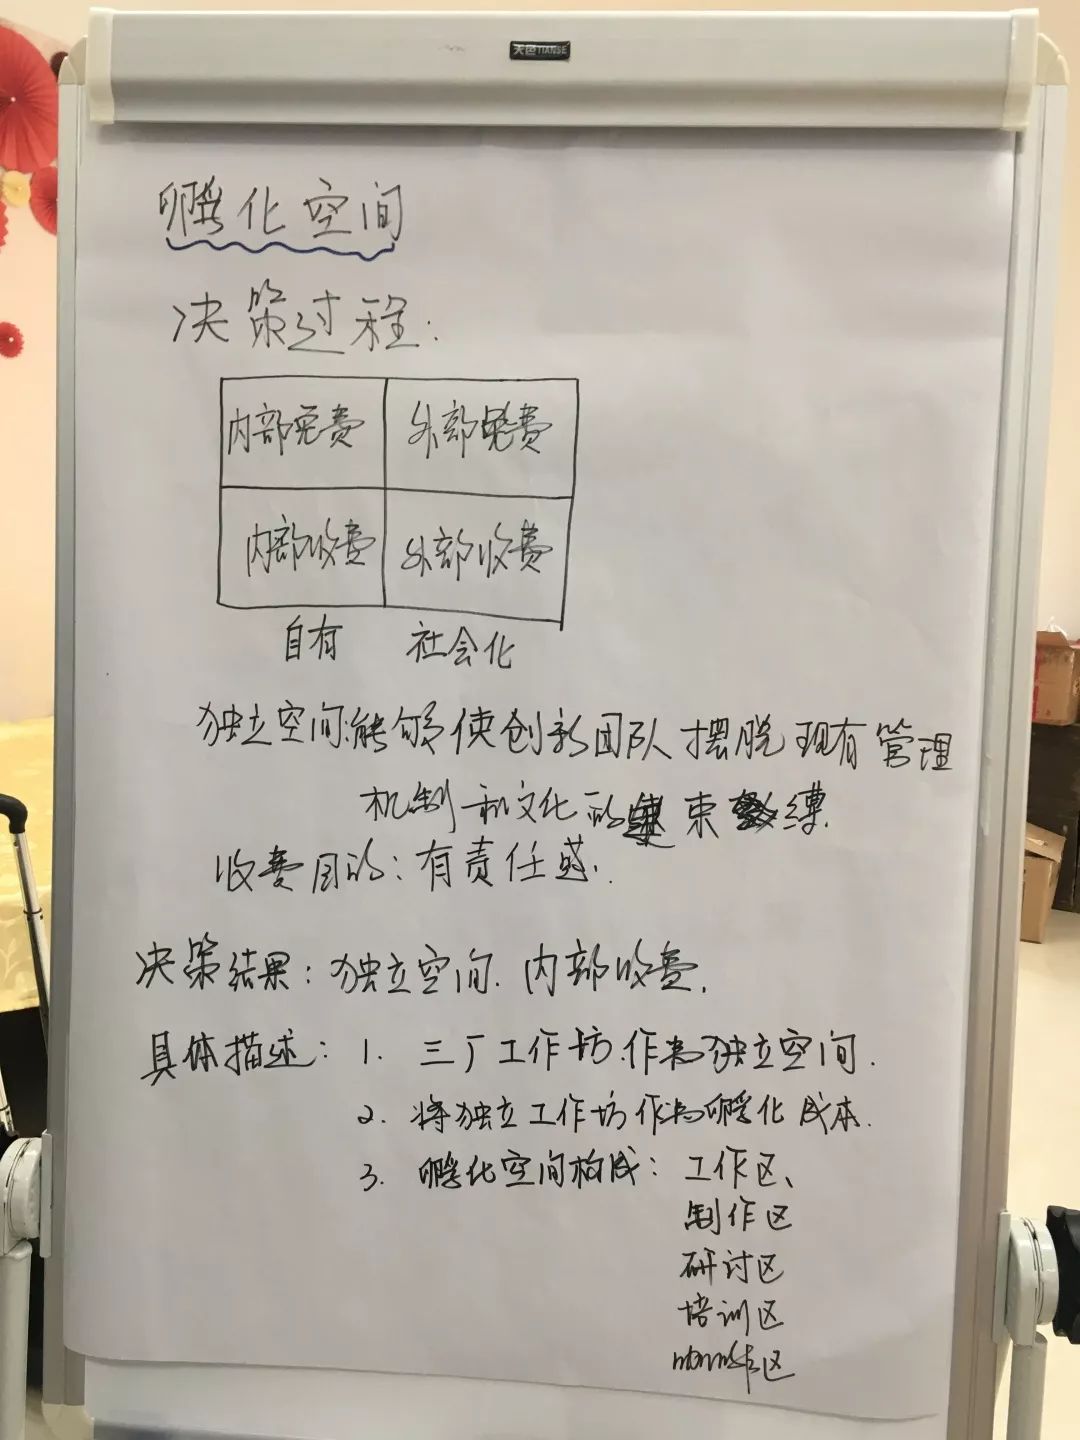 天色TIANSE
孵化空间
决策过程:
内部免费 外部免费
内部收费 外部收费
自有 社会化
独立空间:能够使创新团队摆脱现有管理
机制和文化的束缚.
收费目的:有责任感.
决策结果:独立空间.内部收费.
具体描述:1.三厂工作坊.作为独立空间.
2.将独立工作坊作为孵化成本.
3.孵化空间构成:工作区、
制作区
研讨区
培训区
区